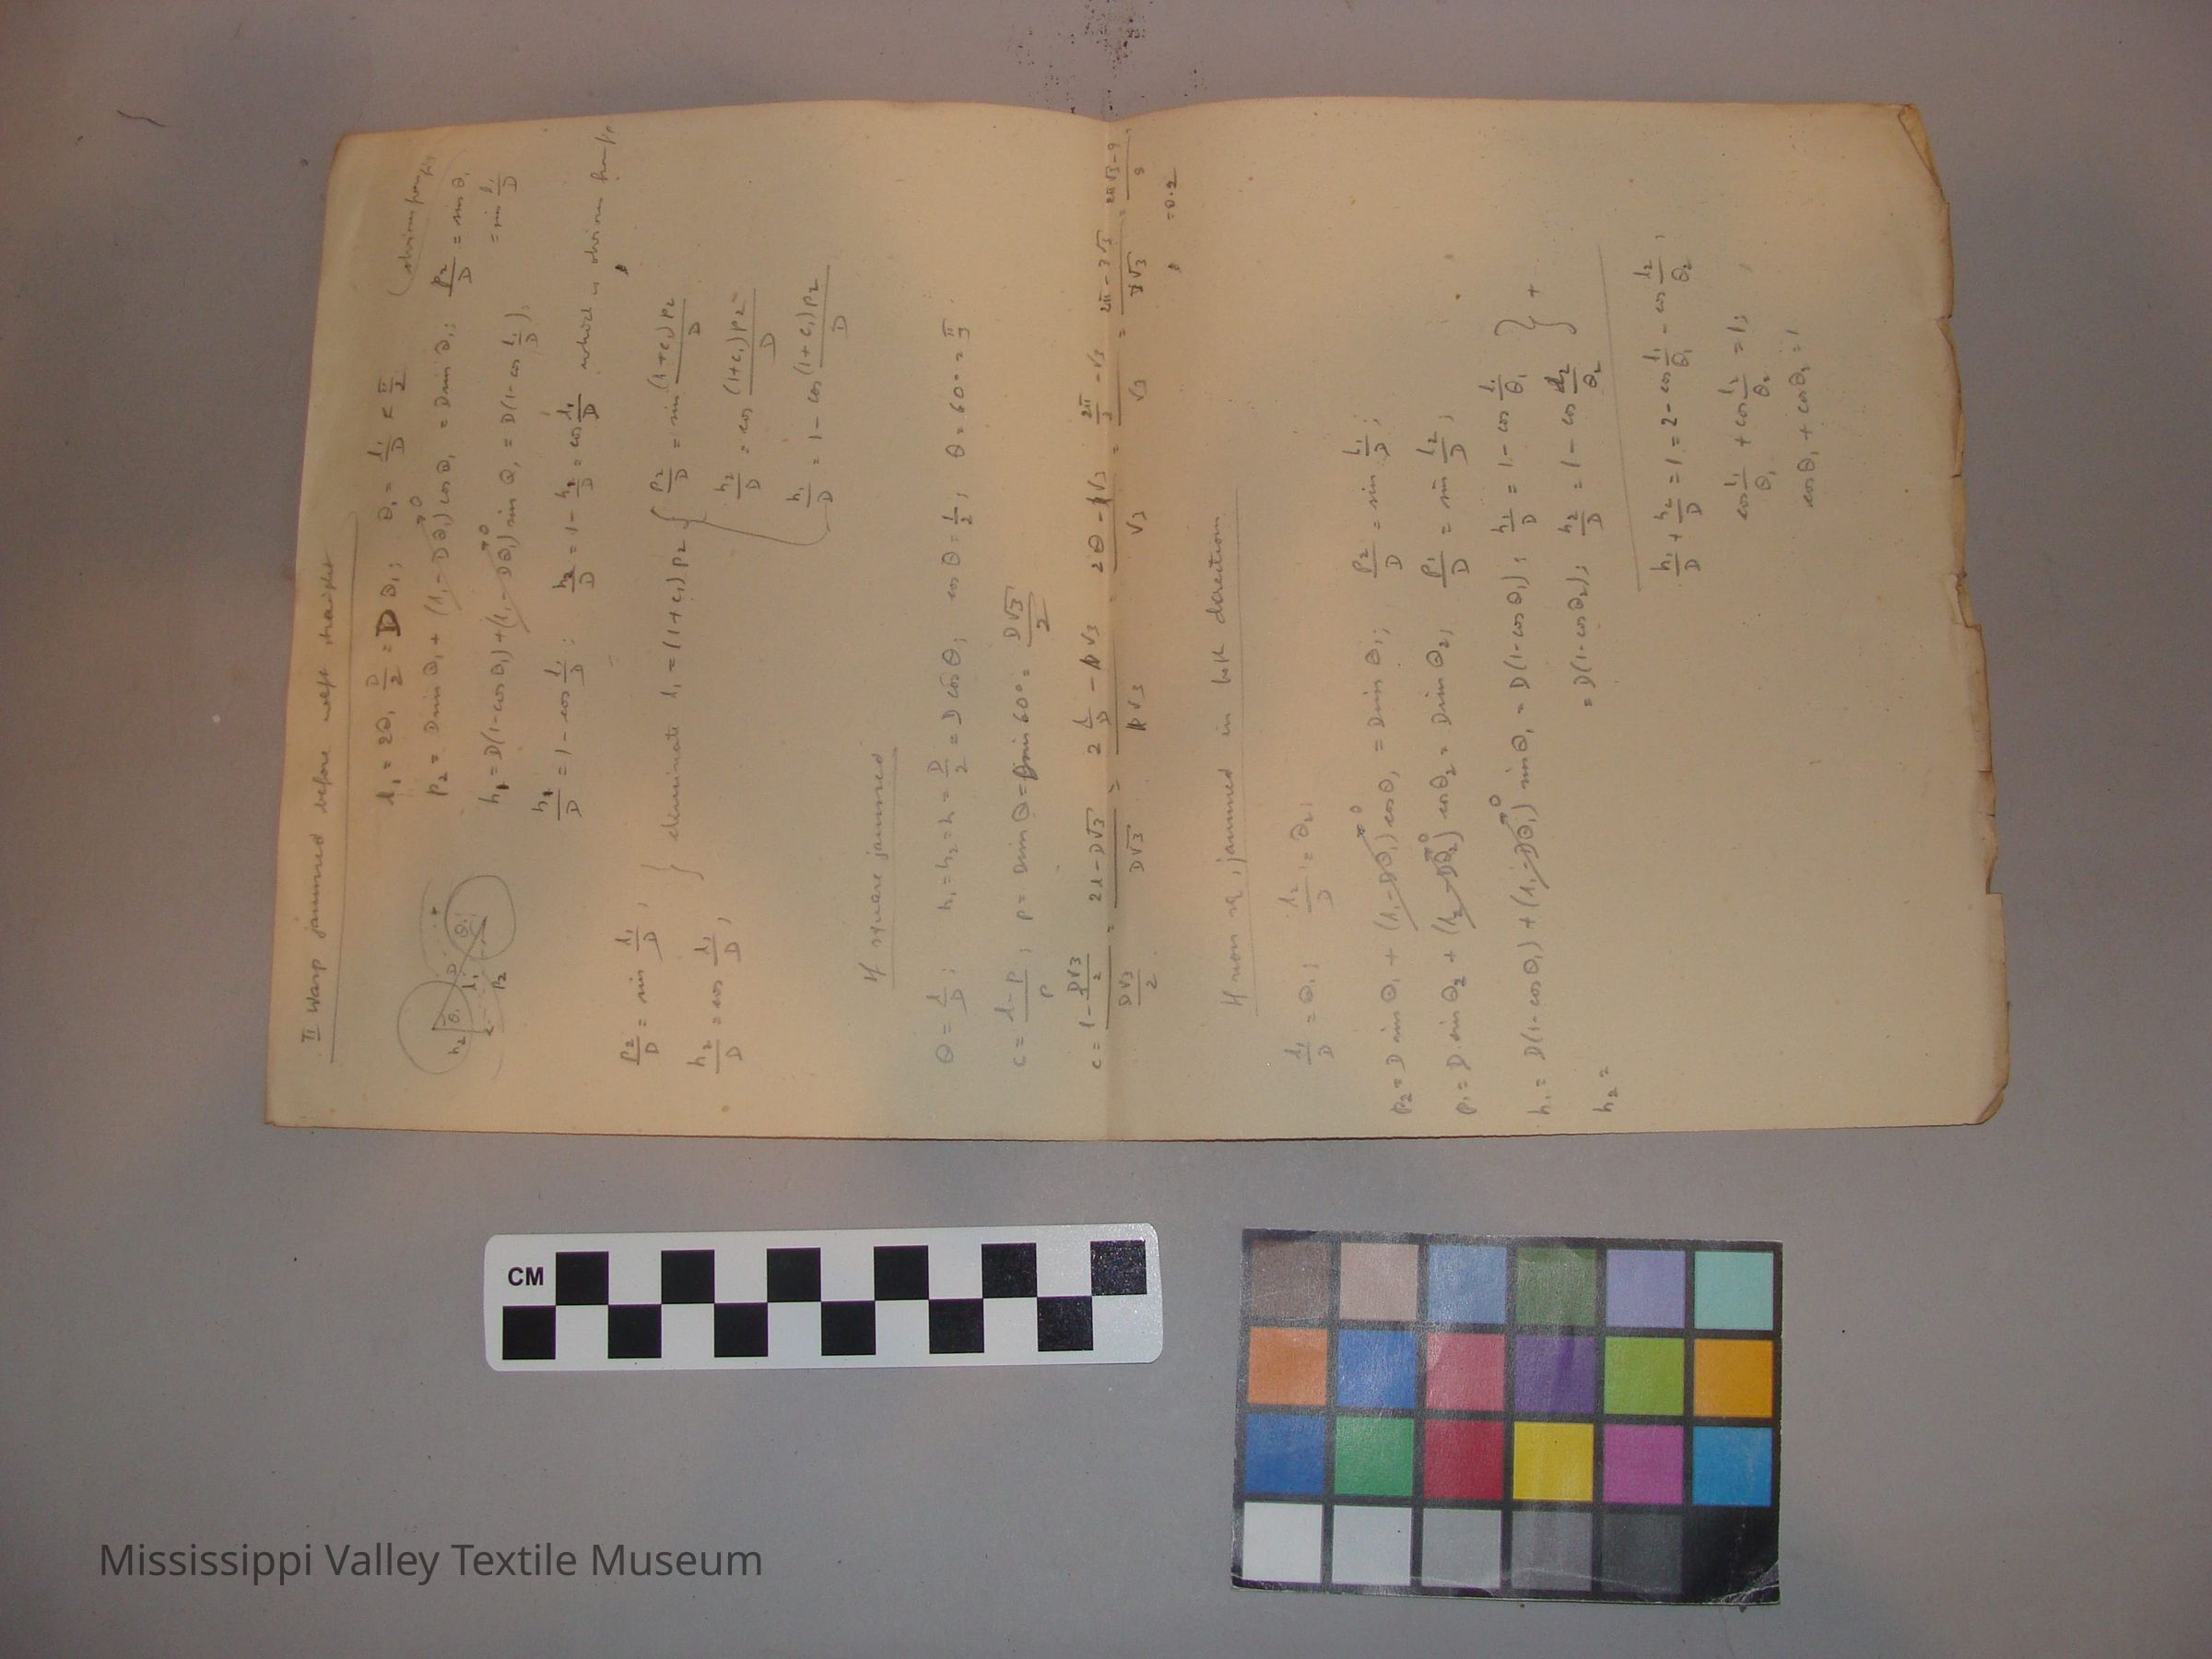 II Warp jammed before weft straight
l₁ = 2θ₁ D/2 = Dθ₁; θ₁ = l₁/D < π/2
p₂ = D sin θ₁ + (l₁ - Dθ₁)→0 cos θ₁ = D sin θ₁; p₂/D = sin θ₁ = sin l₁/D
h₁ = D(1-cos θ₁) + (l₁ - Dθ₁)→0 sin θ₁ = D(1-cos l₁/D);
h₁/D = 1 - cos l₁/D; h₂/D = 1 - h₁/D = cos l₁/D which is
h₂ θ₁ D l₁ θ₁ p₂
p₂/D = sin l₁/D;
h₂/D = cos l₁/D;
} eliminate l₁ = (1+c₁)p₂ { p₂/D = sin (1+c₁)p₂/D
h₂/D = cos (1+c₁)p₂/D
h₁/D = 1 - cos (1+c₁)p₂/D
If square jammed
θ = l/D; h₁ = h₂ = h = D/2 = D cos θ; cos θ = 1/2; θ = 60° = π/3.
c = l-p/p; p = D sin θ = D sin 60° = D√3/2
c = l - D√3/2 / D√3/2 = 2l - D√3 / D√3 = 2 l/D - √3 / √3 = 2θ - √3 / √3 = 2π/3 - √3 / √3 = 2π - 3√3 / 3√3 = 2π√3 - 9 / 9
= 0.2
If non sq, jammed in both derections
l₁/D = θ₁; l₂/D = θ₂;
p₂ = D sin θ₁ + (l₁ - Dθ₁)→0 cos θ₁ = D sin θ₁; p₂/D = sin l₁/D;
p₁ = D sin θ₂ + (l₂ - Dθ₂)→0 cos θ₂ = D sin θ₂; p₁/D = sin l₂/D;
h₁ = D(1-cos θ₁) + (l₁ - Dθ₁)→0 sin θ₁ = D(1-cos θ₁); h₁/D = 1 - cos l₁/θ₁ } +
h₂ = = D(1-cos θ₂); h₂/D = 1 - cos l₂/θ₂
h₁/D + h₂/D = 1 = 2 - cos l₁/θ₁ - cos l₂/θ₂;
cos l₁/θ₁ + cos l₂/θ₂ = 1;
cos θ₁ + cos θ₂ = 1
CM
Mississippi Valley Textile Museum